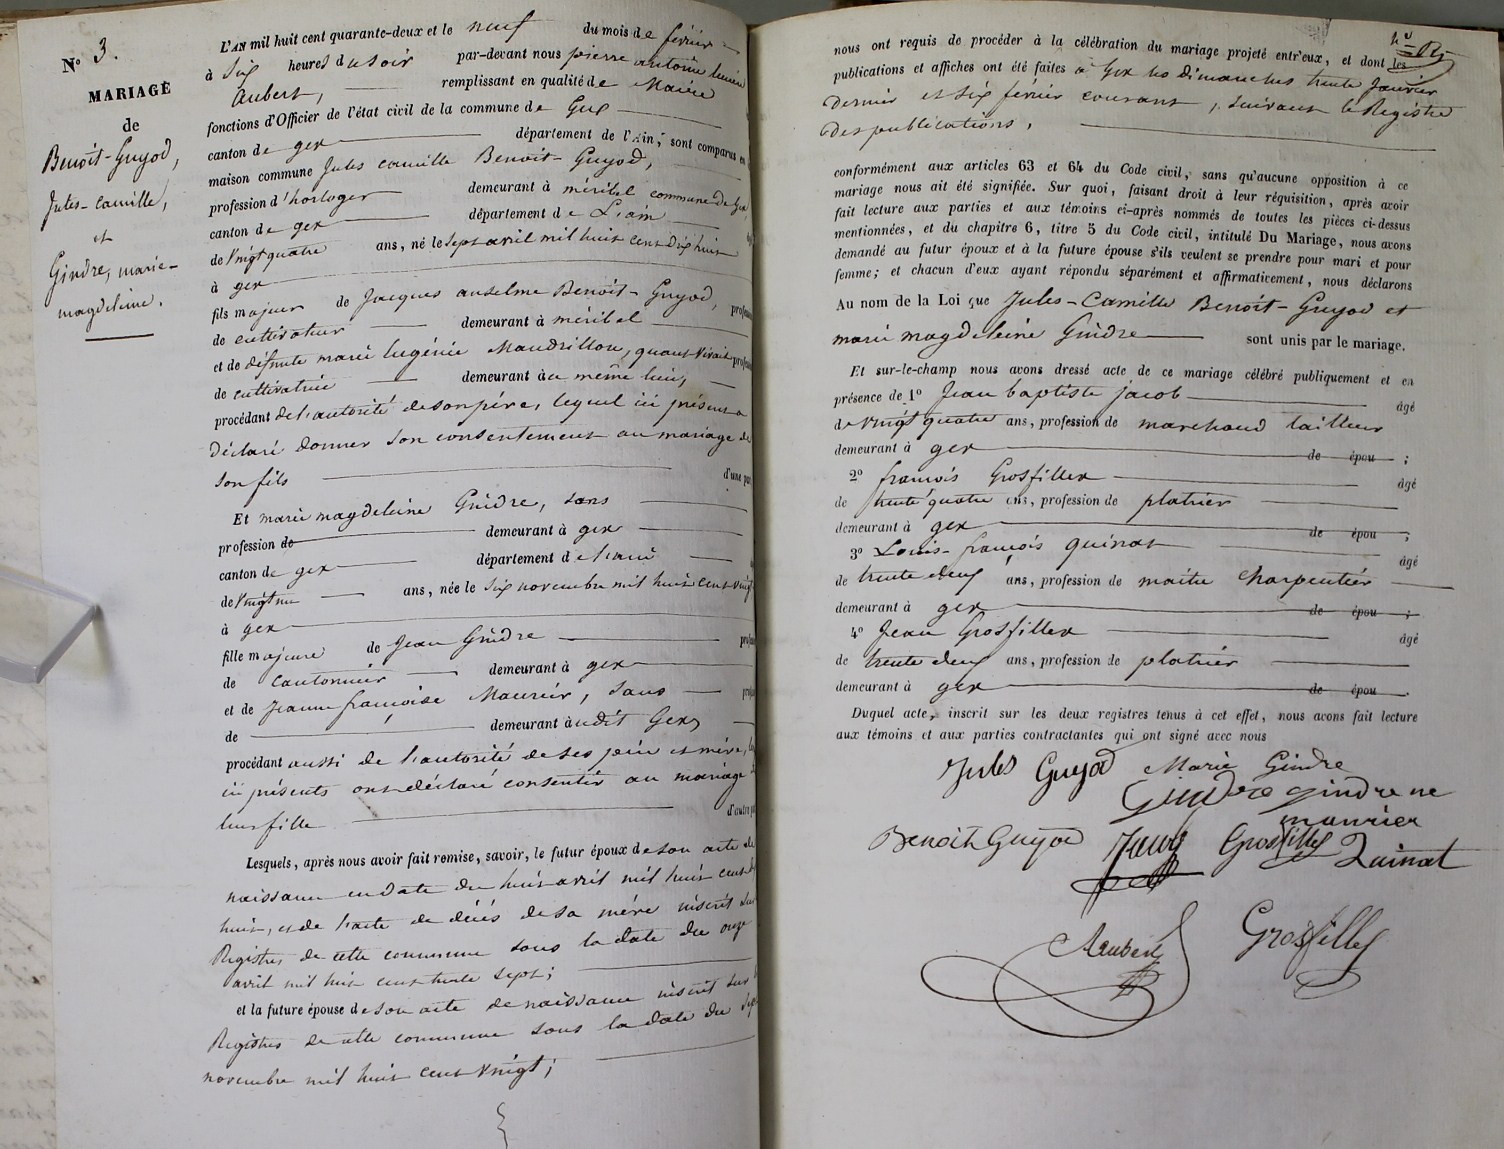 N° 3.
MARIAGE
de
Benoit-Guyod,
Jules-Camille,
et
Gindre, marie-
magdeleine.
L'AN mil huit cent quarante-deux et le neuf du mois de février
à six heures du soir par-devant nous pierre antoine
Aubert, remplissant en qualité de Maire
fonctions d'Officier de l'état civil de la commune de Gex
canton de gex département de l'Ain, sont comparus en
maison commune Jules camille Benoit-Guyod,
profession d'horloger demeurant à méribel commune de Gex,
canton de gex département de L'ain
de Vingt quatre ans, né le sept avril mil huit cent dix huit
à gex
fils majeur de Jacques anselme Benoit-Guyod,
de cultivateur demeurant à méribel
et de défunte marie Eugénie Maudrillon, quant vivait
de cultivatrice demeurant au même lieu,
procédant de l'autorité de son père, lequel ici présent a
déclaré donner son consentement au mariage de
son fils d'une part
Et marie magdeleine Gindre, sans
profession de demeurant à gex
canton de gex département de l'ain
de Vingt un ans, née le six novembre mil huit cent vingt
à gex
fille majeure de Jean Gindre
de cantonnier demeurant à gex
et de Jeanne françoise Maurier, sans
de demeurant à udit Gex,
procédant aussi de l'autorité de ses père et mère,
ici présents ont déclaré consentir au mariage
leur fille d'autre part
Lesquels, après nous avoir fait remise, savoir, le futur époux de son acte de
naissance en date du huit avril mil huit cent dix
huit, et de l'acte de décès de sa mère inscrit sur
Registres de cette commune sous la date du onze
avril mil huit cent trente sept;
et la future épouse de son acte de naissance inscrit sur
Registres de cette commune sous la date du sept
novembre mil huit cent vingt;
nous ont requis de procéder à la célébration du mariage projeté entr'eux, et dont les
publications et affiches ont été faites à Gex les dimanches trente Janvier
dernier et six février courant, suivant le Registre
des publications,
conformément aux articles 63 et 64 du Code civil, sans qu'aucune opposition à ce
mariage nous ait été signifiée. Sur quoi, faisant droit à leur réquisition, après avoir
fait lecture aux parties et aux témoins ci-après nommés de toutes les pièces ci-dessus
mentionnées, et du chapitre 6, titre 5 du Code civil, intitulé Du Mariage, nous avons
demandé au futur époux et à la future épouse s'ils veulent se prendre pour mari et pour
femme; et chacun d'eux ayant répondu séparément et affirmativement, nous déclarons
Au nom de la Loi que Jules-Camille Benoit-Guyod et
marie magdeleine Gindre sont unis par le mariage.
Et sur-le-champ nous avons dressé acte de ce mariage célébré publiquement et en
présence de 1° Jean baptiste jacob âgé
de vingt quatre ans, profession de marchand tailleur
demeurant à gex de épou ;
2° françois Grosfillex âgé
de trente quatre ans, profession de platrier
demeurant à gex de épou ;
3° Louis-françois quinat âgé
de trente deux ans, profession de maitre charpentier
demeurant à gex de épou ;
4° Jean Grosfillex âgé
de trente deux ans, profession de platrier
demeurant à gex de épou .
Duquel acte, inscrit sur les deux registres tenus à cet effet, nous avons fait lecture
aux témoins et aux parties contractantes qui ont signé avec nous
Jules Guyod Marie Gindre
Gindre gindre ne
maurier
Benoit Guyod Jacob Grosfillex Quinat
Aubert Grosfillex